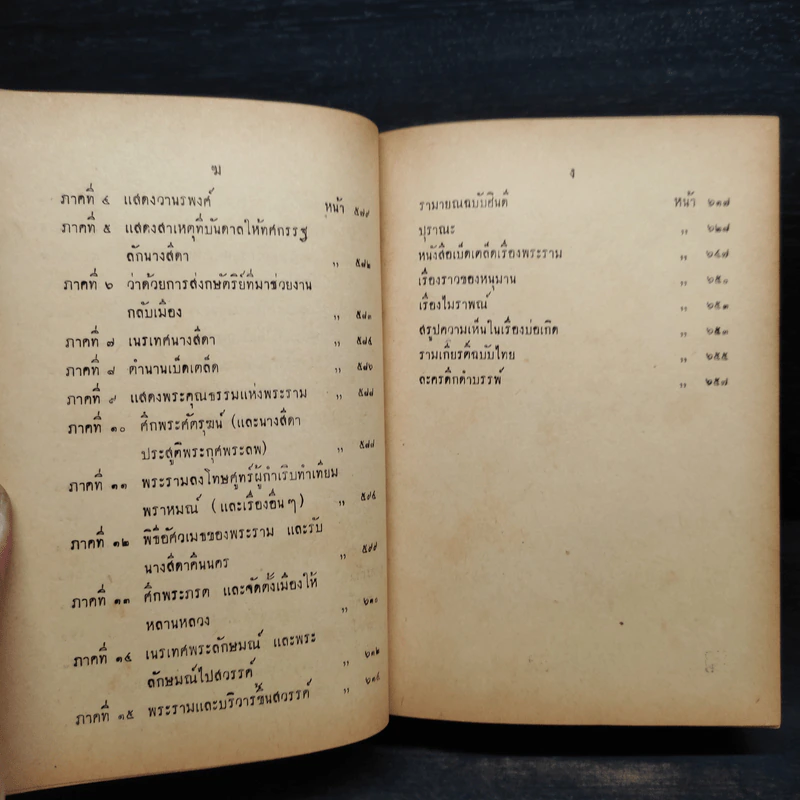 ฆ
ภาคที่ ๔ แสดงวานรพงศ์ หน้า ๕๗๙
ภาคที่ ๕ แสดงสาเหตุที่บันดาลให้ทศกรรฐ
ลักนางสีดา ,, ๕๘๒
ภาคที่ ๖ ว่าด้วยการส่งกษัตริย์ที่มาช่วยงาน
กลับเมือง ,, ๕๘๓
ภาคที่ ๗ เนรเทศนางสีดา ,, ๕๘๔
ภาคที่ ๘ ตำนานเบ็ดเตล็ด ,, ๕๘๖
ภาคที่ ๙ แสดงพระคุณธรรมแห่งพระราม ,, ๕๘๗
ภาคที่ ๑๐ ศึกพระศัตรุฆน์ (และนางสีดา
ประสูติพระกุศพระลพ) ,, ๕๘๘
ภาคที่ ๑๑ พระรามลงโทษศูทร์ผู้กำเริบทำเทียม
พราหมณ์ (และเรื่องอื่นๆ) ,, ๕๙๔
ภาคที่ ๑๒ พิธีอัศวเมธของพระราม และรับ
นางสีดาคืนนคร ,, ๕๙๙
ภาคที่ ๑๓ ศึกพระภรต และจัดตั้งเมืองให้
หลานหลวง ,, ๖๑๐
ภาคที่ ๑๔ เนรเทศพระลักษมณ์ และพระ
ลักษมณ์ไปสวรรค์ ,, ๖๑๒
ภาคที่ ๑๕ พระรามและบริวารขึ้นสวรรค์ ,, ๖๑๔
ง
รามายณฉบับฮินดี หน้า ๖๑๗
ปุราณะ ,, ๖๒๗
หนังสือเบ็ดเตล็ดเรื่องพระราม ,, ๖๔๗
เรื่องราวของหนุมาน ,, ๖๕๐
เรื่องไมราพณ์ ,, ๖๕๑
สรูปความเห็นในเรื่องบ่อเกิด ,, ๖๕๓
รามเกียรติ์ฉบับไทย ,, ๖๕๕
ละครดึกดำบรรพ์ ,, ๖๕๗